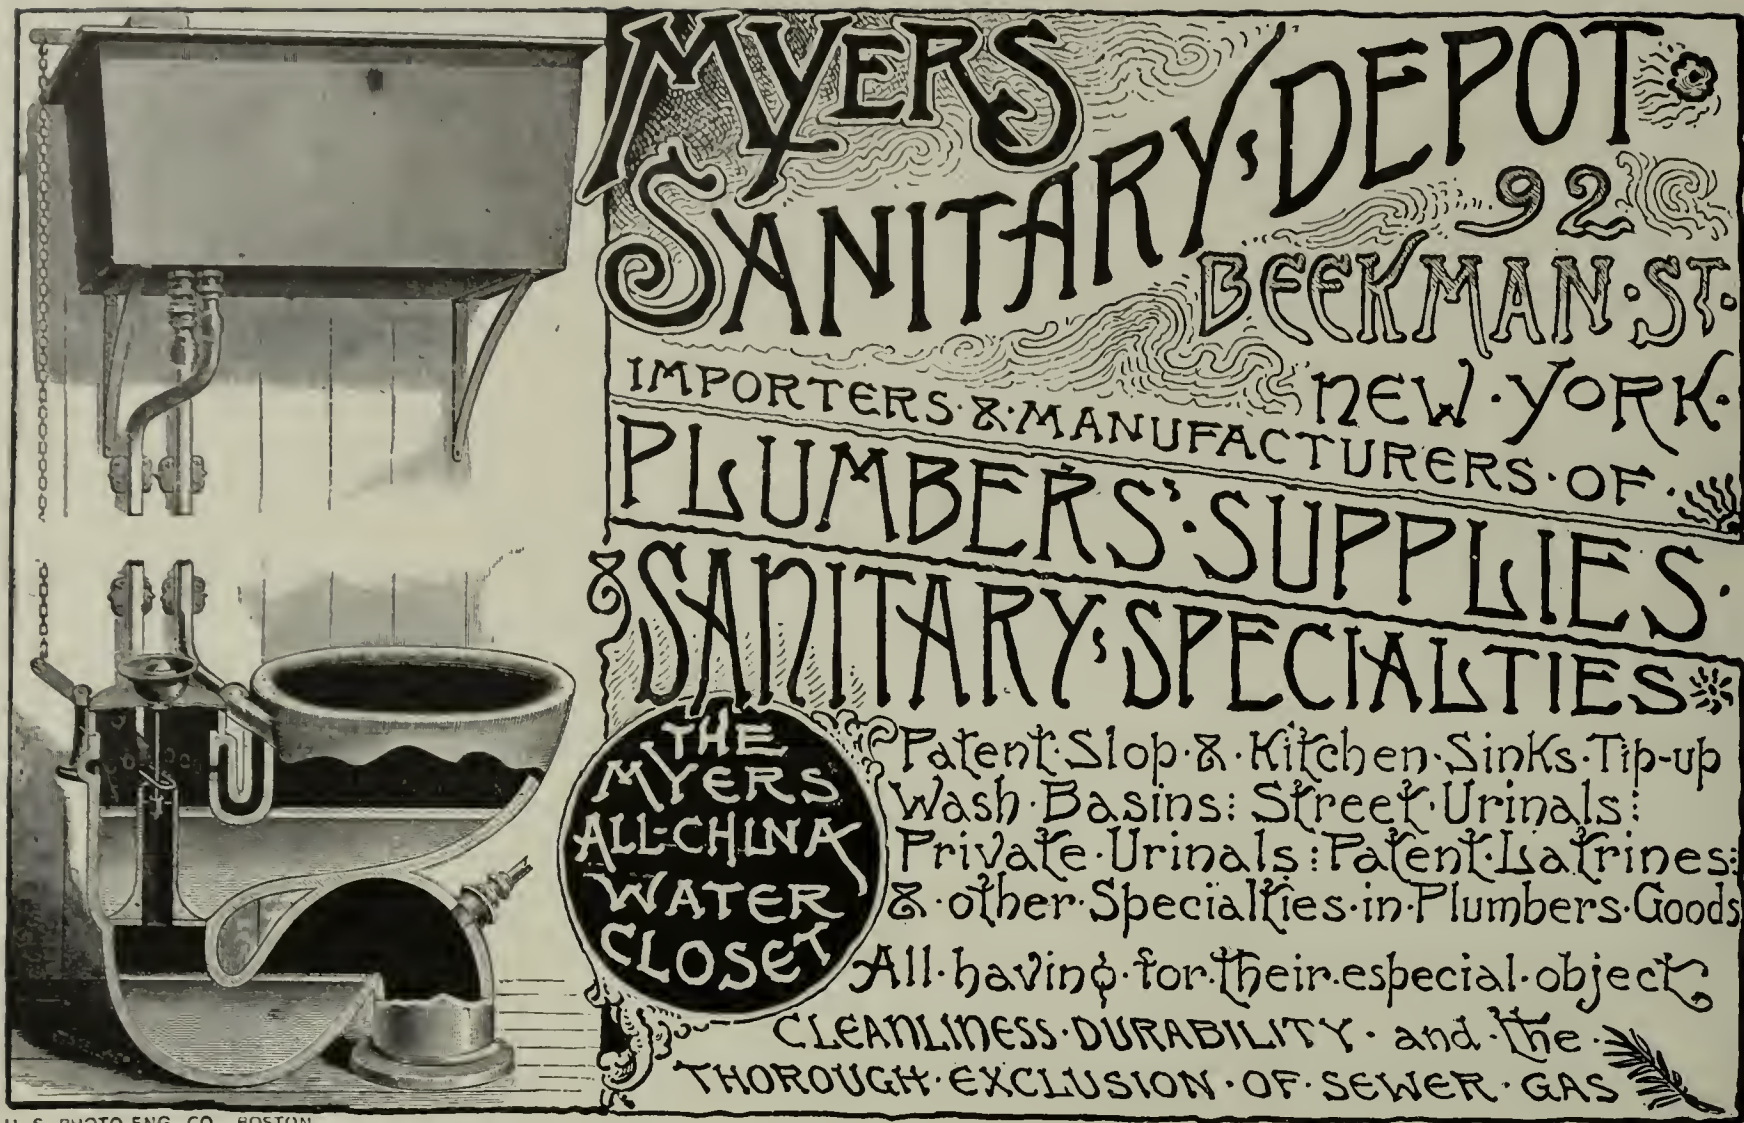 MYERS
SANITARY DEPOT
92
BEEKMAN·ST·
NEW·YORK·
IMPORTERS·&·MANUFACTURERS·OF·
PLUMBERS'·SUPPLIES·
& SANITARY SPECIALTIES
THE
MYERS
ALL-CHINA
WATER
CLOSET
Patent·Slop·&·Kitchen·Sinks·Tip-up
Wash·Basins: Street·Urinals:
Private·Urinals: Patent·Latrines:
&·other·Specialties·in·Plumbers·Goods
All·having·for·their·especial·object
CLEANLINESS·DURABILITY·and·the·
THOROUGH·EXCLUSION·OF·SEWER·GAS
U.S. PHOTO-ENG. CO. BOSTON